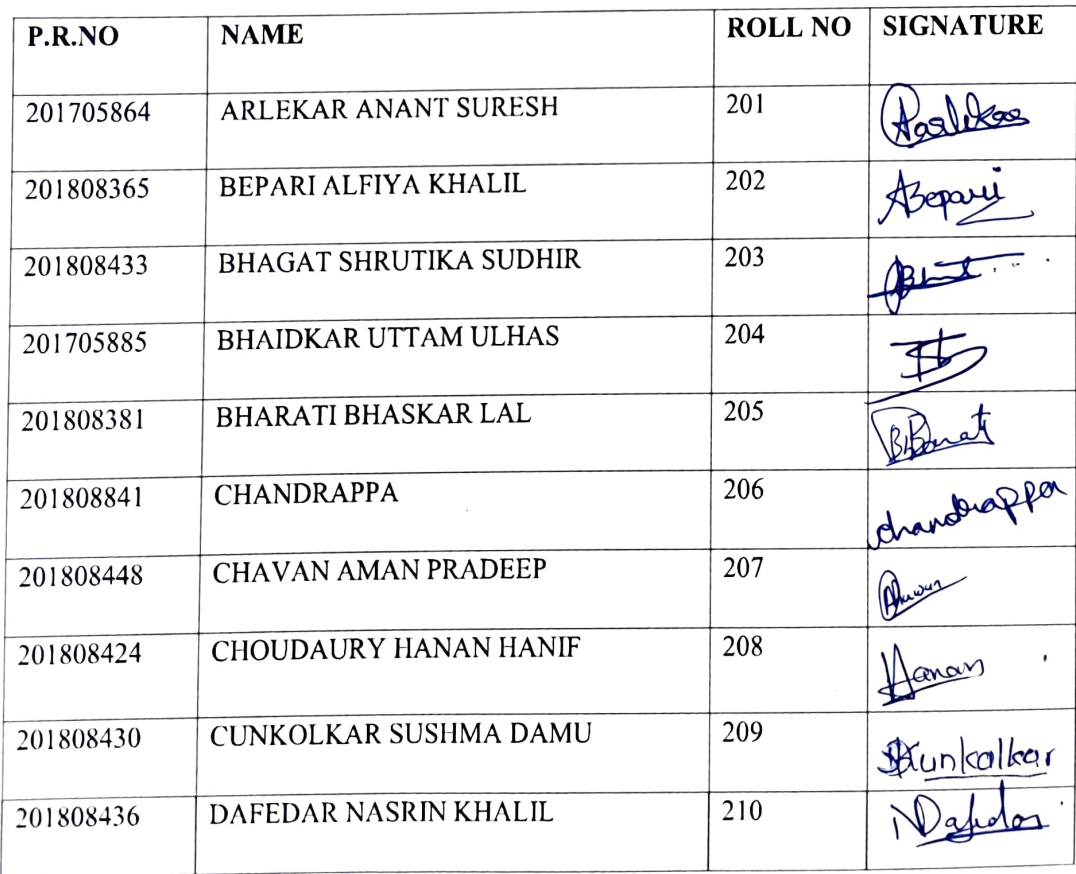 P.R.NO NAME ROLL NO SIGNATURE
201705864 ARLEKAR ANANT SURESH 201 Aarlekar
201808365 BEPARI ALFIYA KHALIL 202 ABepari
201808433 BHAGAT SHRUTIKA SUDHIR 203
201705885 BHAIDKAR UTTAM ULHAS 204
201808381 BHARATI BHASKAR LAL 205
201808841 CHANDRAPPA 206 chandrappa
201808448 CHAVAN AMAN PRADEEP 207
201808424 CHOUDAURY HANAN HANIF 208 Hanan
201808430 CUNKOLKAR SUSHMA DAMU 209
201808436 DAFEDAR NASRIN KHALIL 210 NDafedar